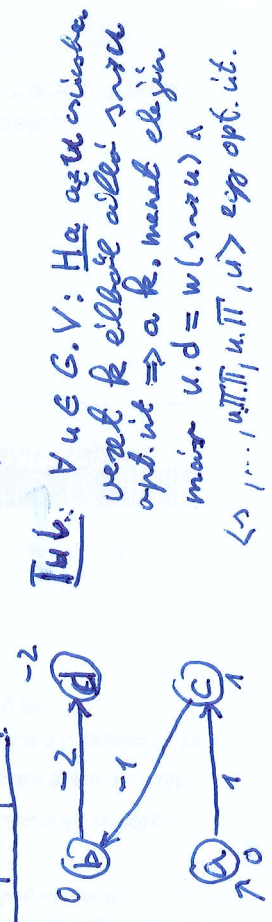 Tul.: ∀ u ∈ G.V: Ha az u csúcsba
vezet k élből álló s⇝u
opt út ⇒ a k. menet elején
már u.d = w(s⇝u) ∧
⟨s, ..., u.π.π, u.π, u⟩ egy opt. út.
0 b -2 d -2
-1
a 1 c
0 1